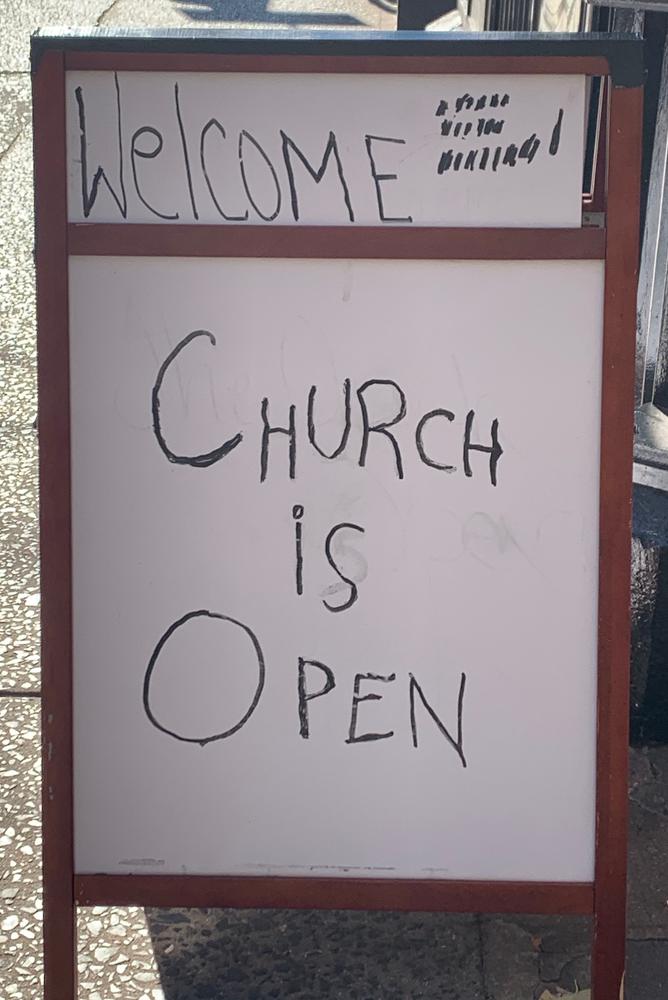 WelCOME
CHURCH
is
OPEN